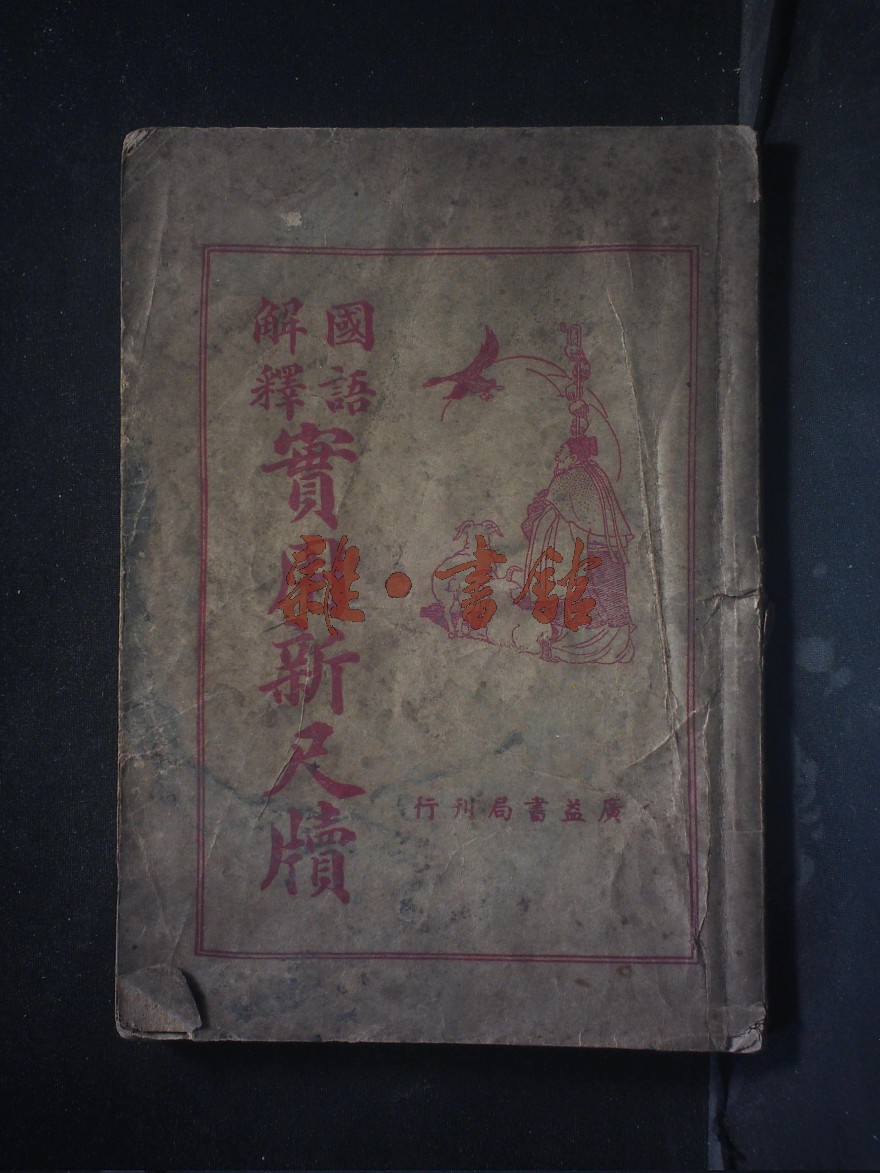 國語
解釋
實用新尺牘
廣益書局刊行
雜·書館